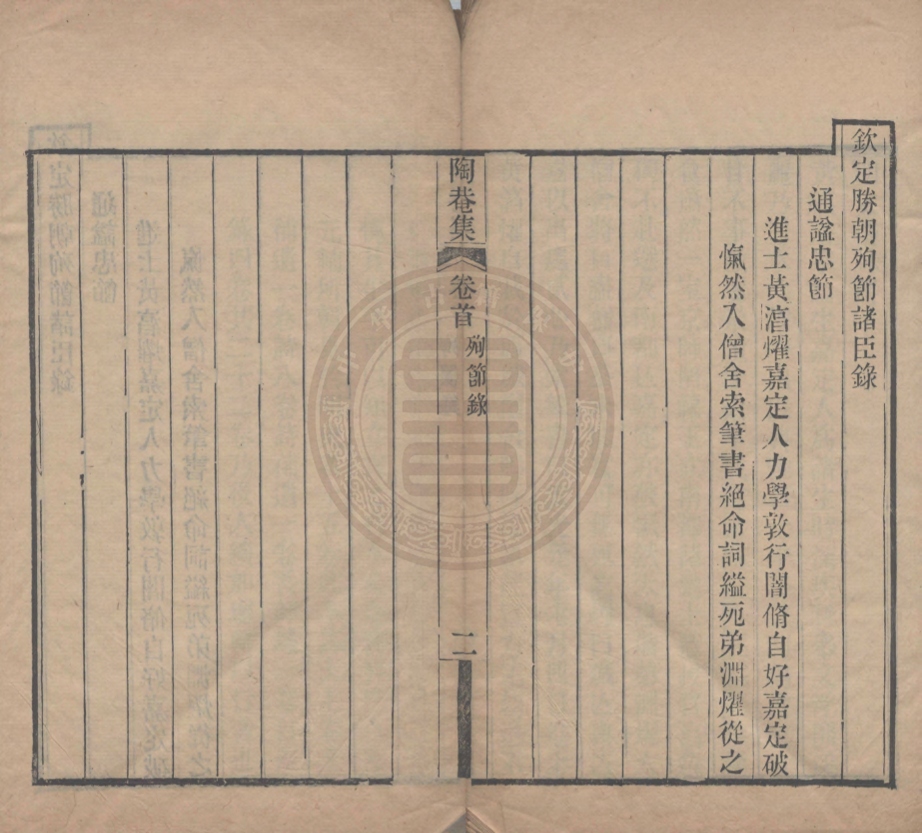 欽定勝朝殉節諸臣錄
通諡忠節
進士黃淯燿嘉定人力學敦行闇脩自好嘉定破
愾然入僧舍索筆書絕命詞縊死弟淵燿從之
陶菴集 卷首 殉節錄 二